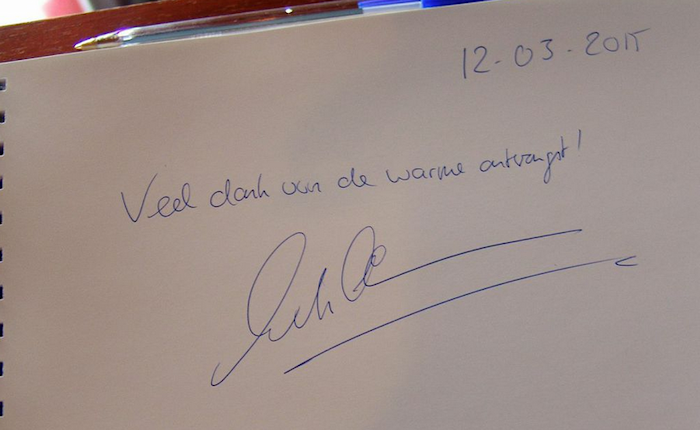 12-03-2015
Veel dank van de warme ontvangst!